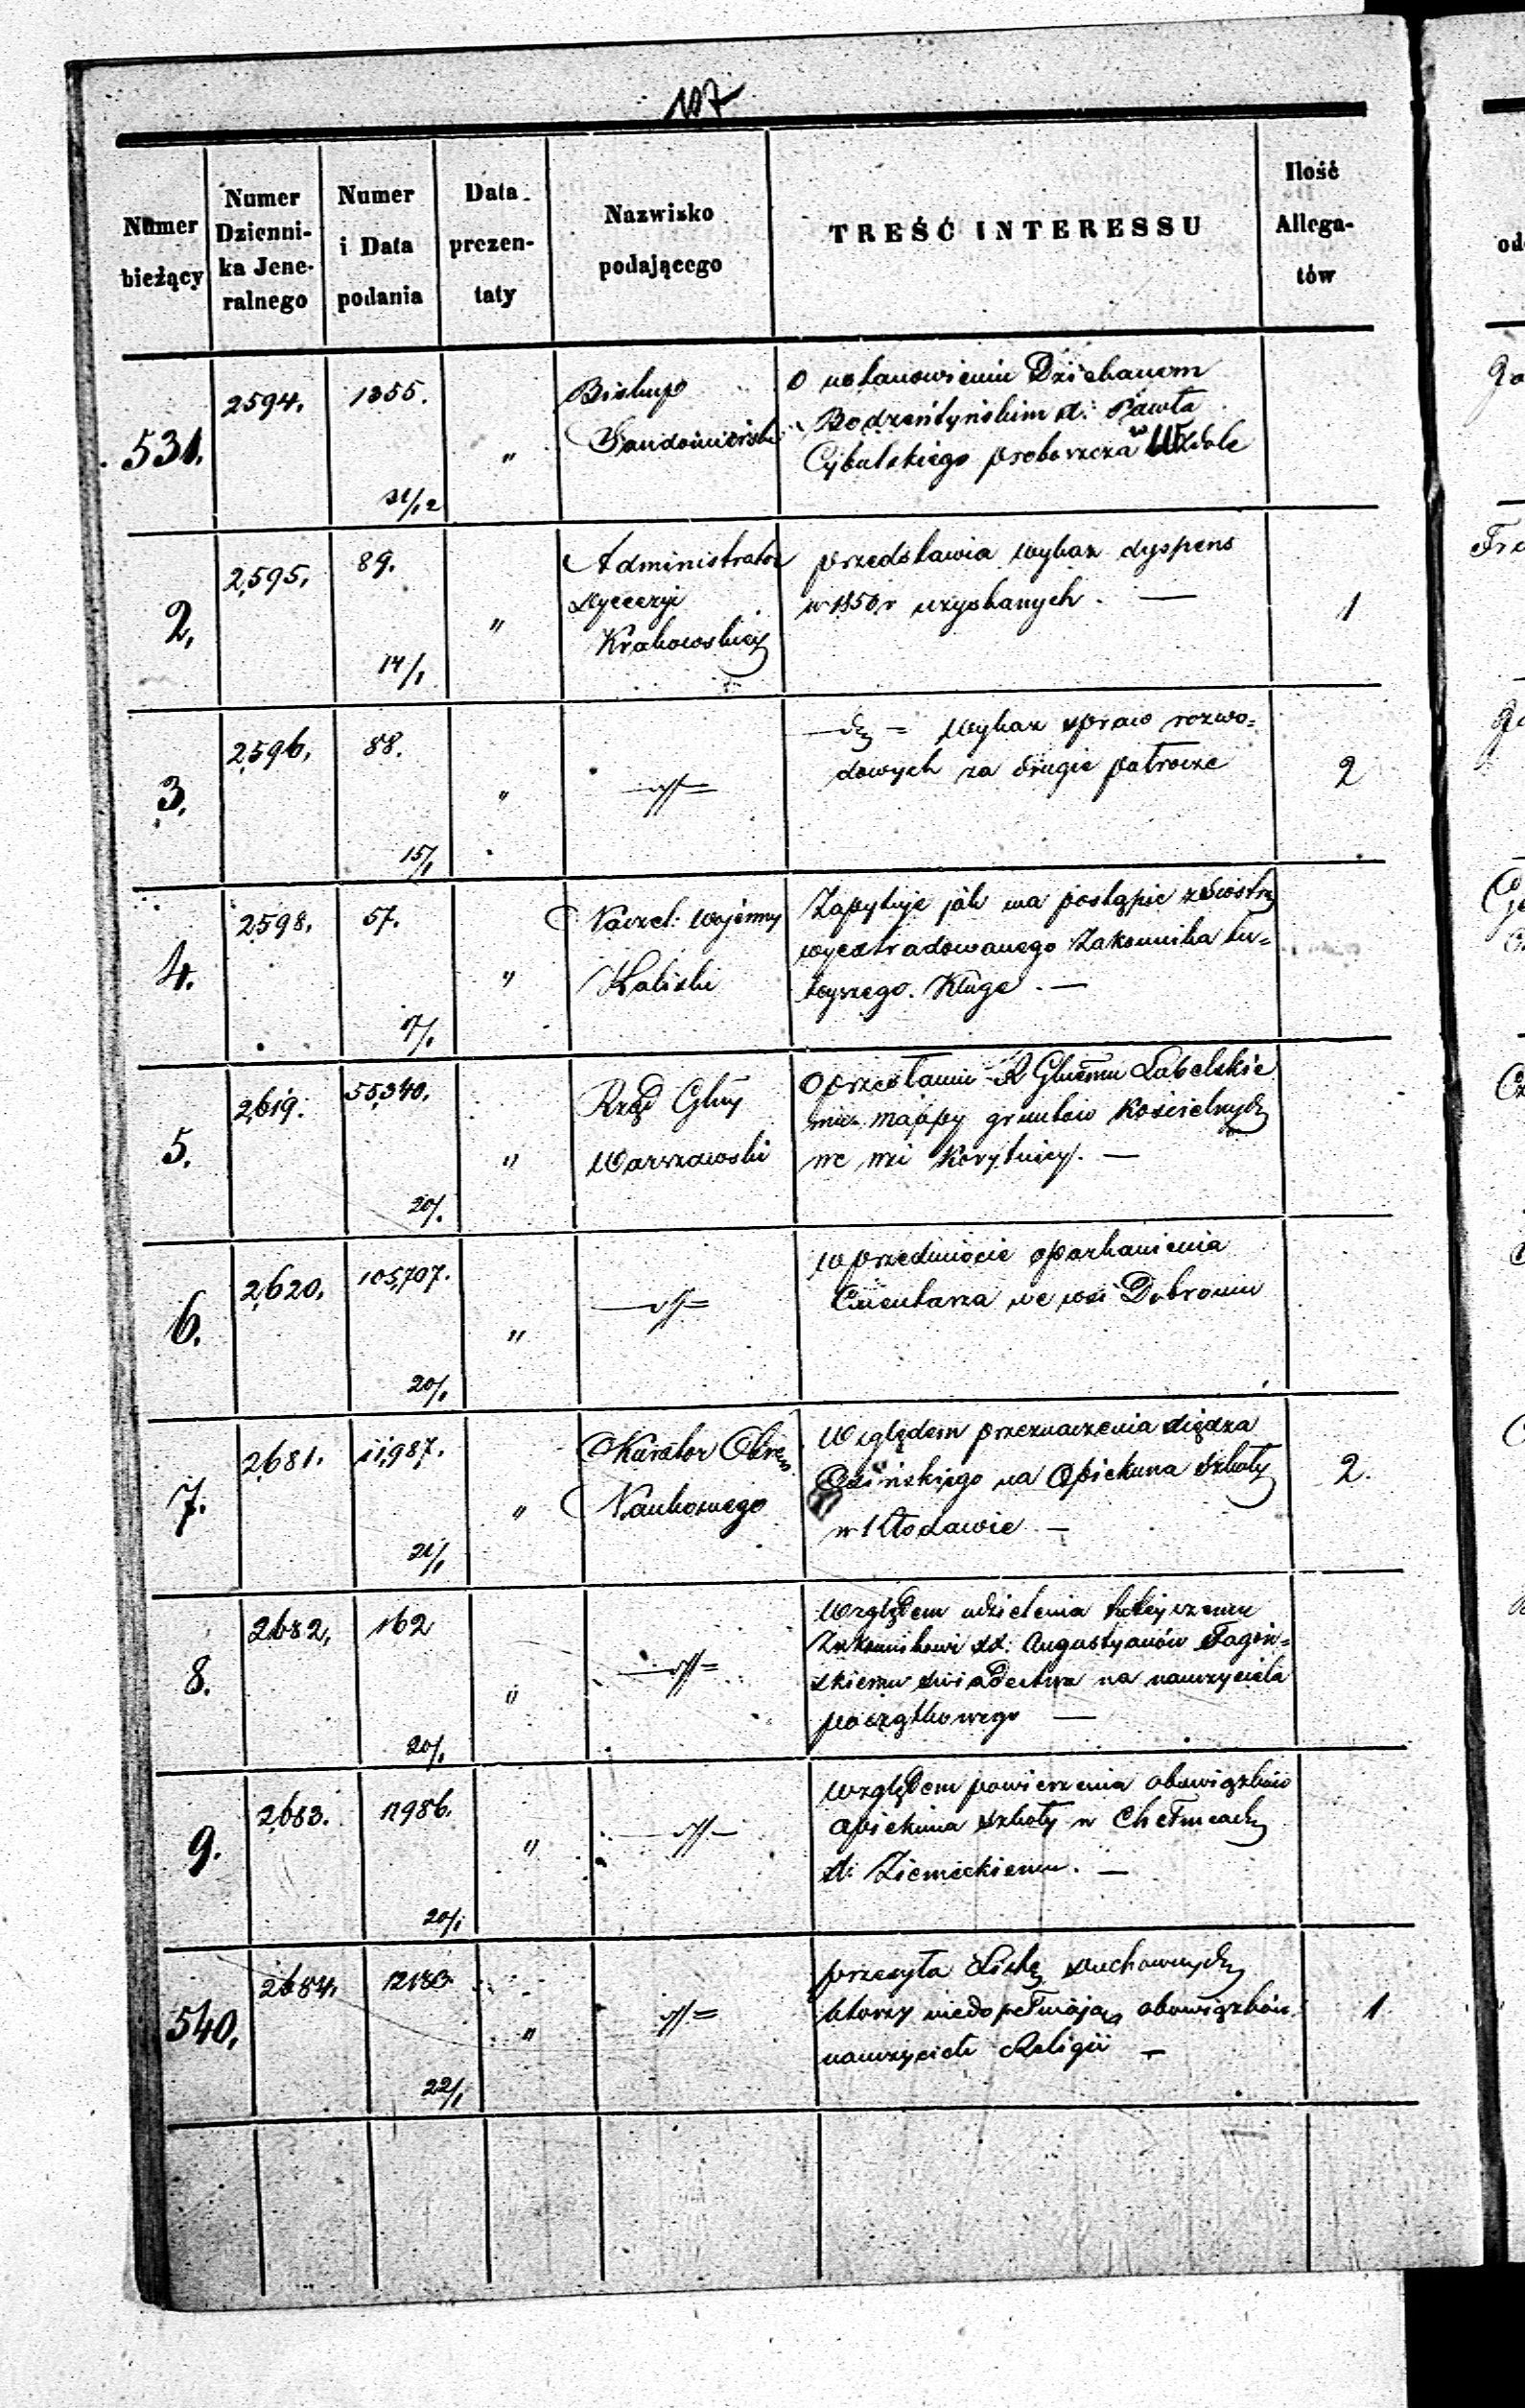 107
Numer bieżący
Numer Dzienni-ka Jene-ralnego
Numer i Data podania
Data prezen-taty
Nazwisko podającego
TREŚĆ INTERESSU
Ilość Allega-tów
531. 2594. 1355. 31/12 " Biskup
Sandomierski
o ustanowieniu Dziekanem
Bodzentyńskim X: Pawła
Cybulskiego proboszcza w Wzdole
2, 2,595, 89. 14/1 " Administrator
Dyecezyi
Krakowskiej
przedstawia wykaz dyspens
w 1850 r uzyskanych. —
1
3. 2,596, 88. 15/1 "
—dz = Wykaz spraw rozwo=
dowych za drugie półrocze
2
4. 2598. 57. 17/1 " Naczel: Wojenny
Kaliski
Zapytuje jak ma postąpić z Siostrą
wyextradowanego Zakonnika tu=
tejszego. Kluge. —
5. 2,619. 55,340. 20/1 " Rząd Glny
Warszawski
o przesłaniu R Glnemu Lubelskie
mu mappy gruntów Kościelnych
we wsi Korytnicy. —
6. 2,620, 105,707. 20/1 "
w przedmiocie oparkanienia
Cmentarza we wsi Dobroniu
7. 2,681. 11,987. 21/1 " Kurator Okręg
Naukowego
Względem przeznaczenia Xiędza
Osińskiego na Opiekuna Szkoły
w Kłodawie —
2.
8. 2682, 162 20/1 "
Względem udzielenia tutejszemu
Zakonnikowi XX: Augustyanów
skiemu świadectwa na nauczyciela
początkowego —
9. 2,683. 11986. 20/1 "
względem powierzenia obowiązków
opiekuna szkoły w Chełmcach
X: Ziemieckiemu. —
540. 2684. 12183. 22/1 "
przesyła Listę duchownych
którzy niedopełniają obowiązków
nauczycieli Religii —
1